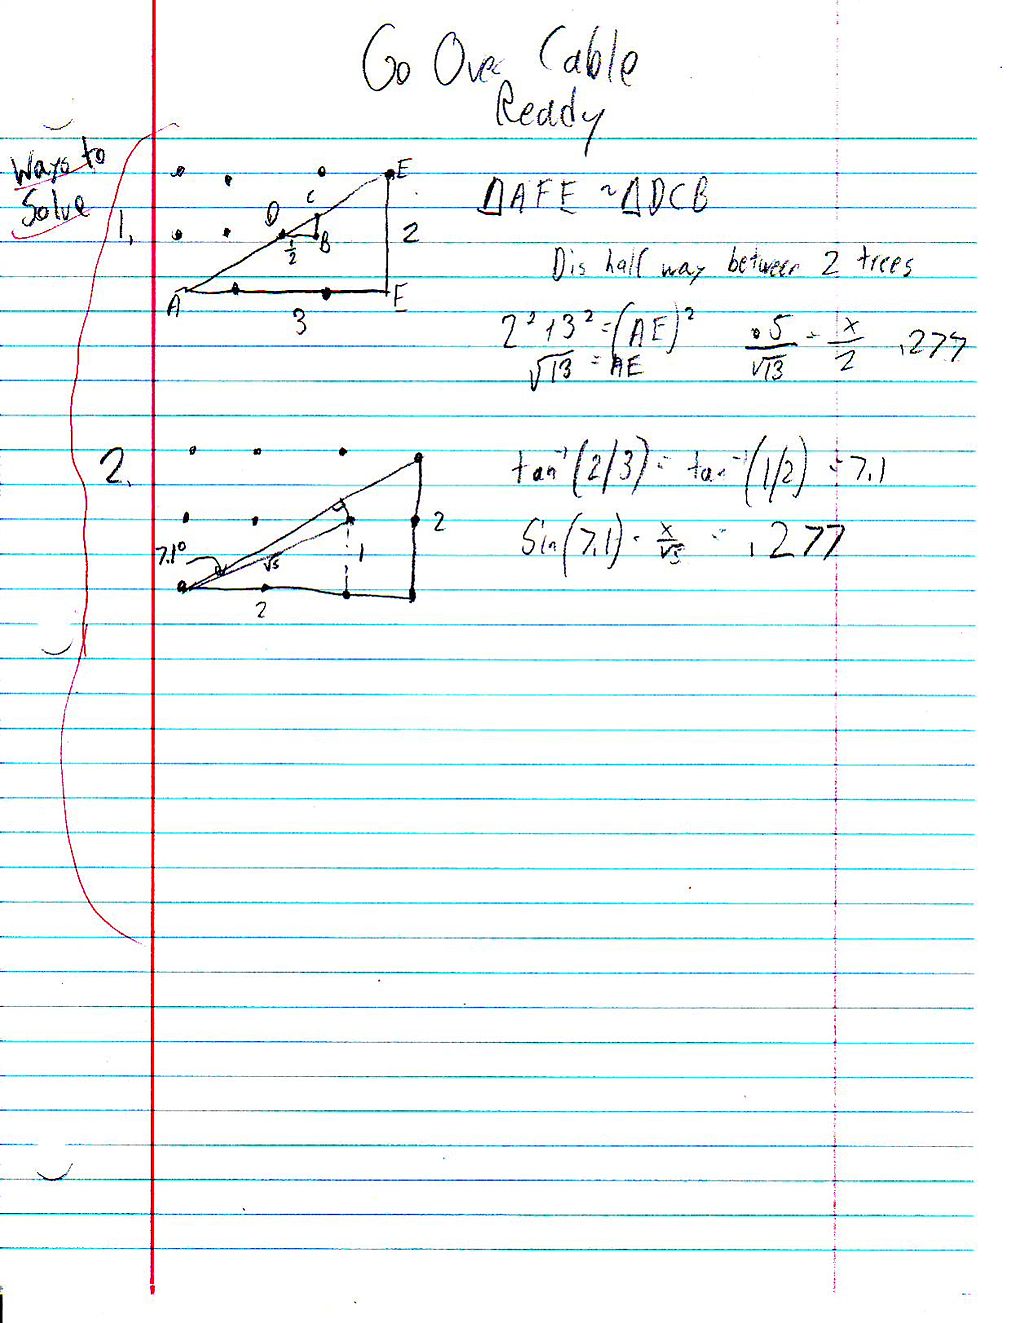 Go Over Cable
Ready
Ways to
Solve
1.
E
C
D
B
1/2
2
A
E
3
ΔAFE ~ ΔDCB
D is half way between 2 trees
2² + 3² = (AE)²
√13 = AE
.5/√13 = x/2 .277
2.
7.1°
√5
1
2
2
tan⁻¹(2/3) - tan⁻¹(1/2) = 7.1
Sin(7.1) = x/√5 = .277